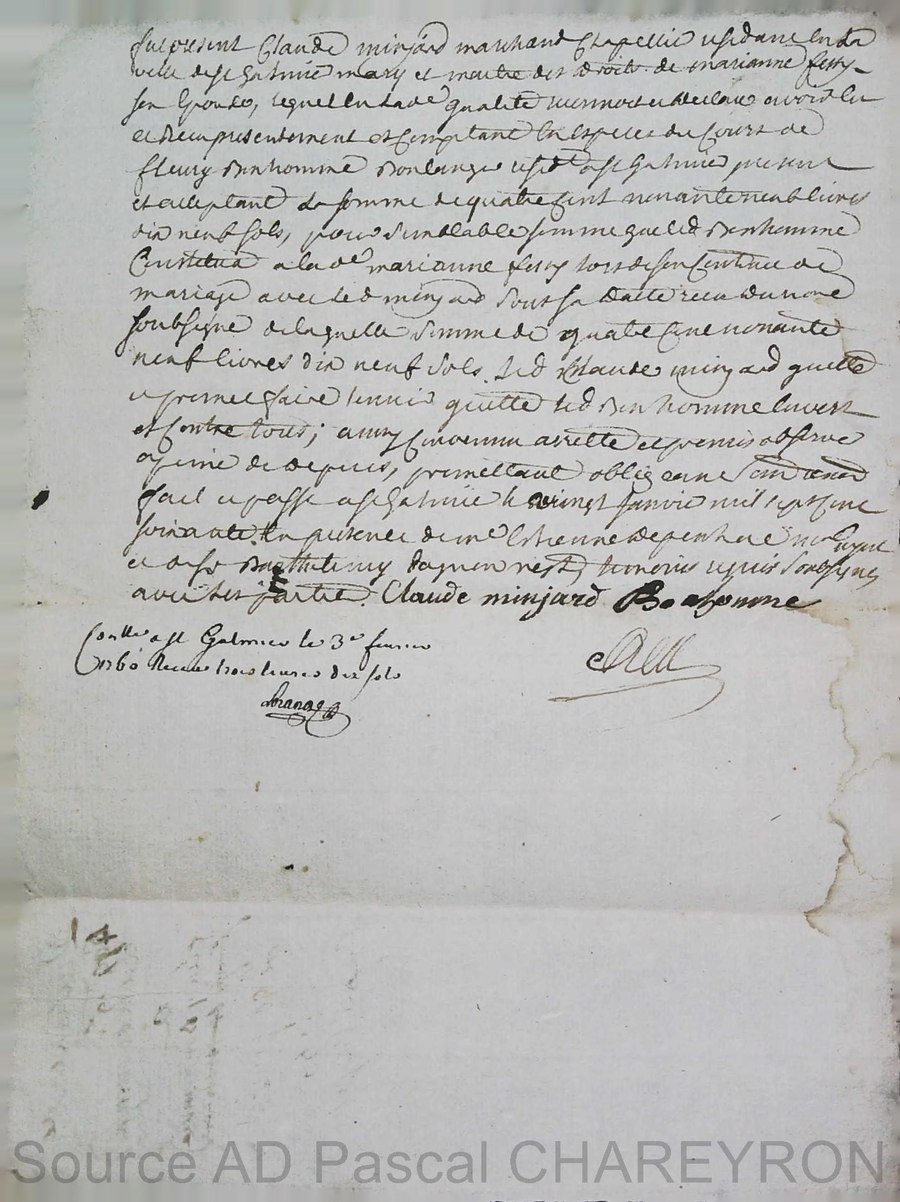 fut present Claude minjard marchand Chapellie residant en la
ville de st Galmier mary et maitre des droits de marianne ferry
son Epouse, lequel en lade qualité reconnoit et declare avoir eu
et Receu presentement et Comptant En especes du Court de
fleury Bonhomme Boulanger reside a st Galmier present
et acceptant La somme de quatre cent nonante neuf livres
dix neuf sols, pour semblable somme que led Bonhomme
Constitua a lade marianne ferry lors de son Contract de
mariage avec led minjard sous sa datte receu du no
soubsigne de laquelle somme de quatre cent nonante
neuf livres dix neuf sols led Claude minjard quitte
et promet faire tenir quitte led Bonhomme Envers
et Contre tous; ainsy Convenu arretté et promis observe
a peine de depens, promettant obligeant
fait et passé a st Galmier le vingt Janvier mil sept cent
soixante En presence de me Estienne
et de sr Barthelemy temoins requis soubsignes
avec les partie. Claude minjard Bonhomme
Conlle a st Galmier le 3e fevrier
1760 Receu trois livres dix sols